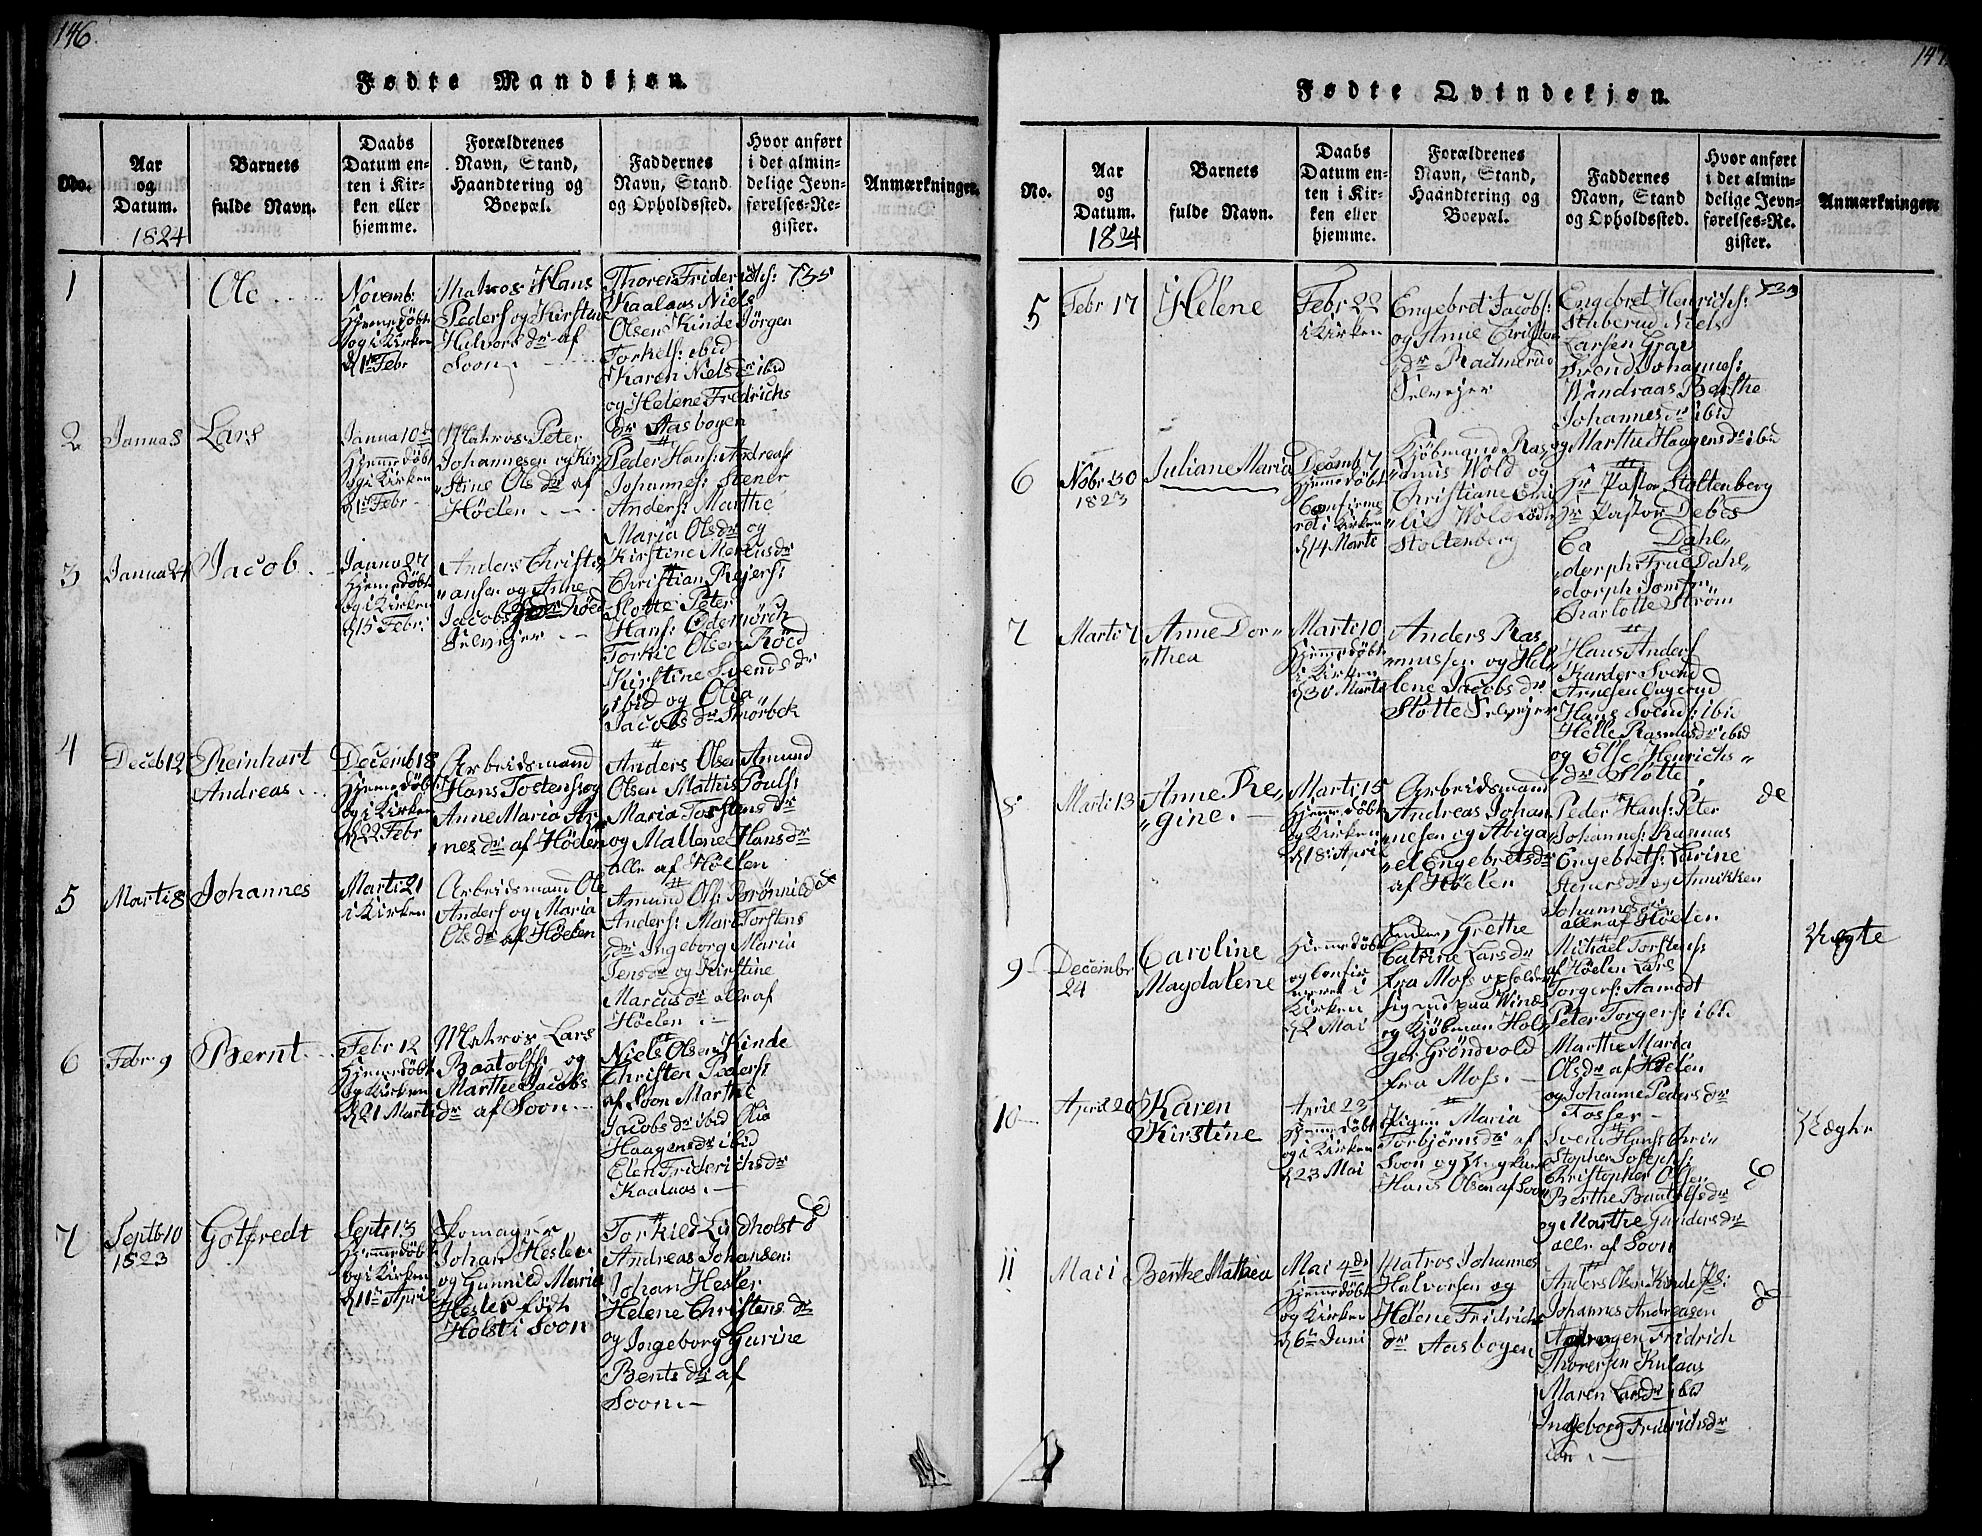 146.
Fødte Mandkjøn.
No.
Aar
og
Datum.
1824
Barnets
fulde Navn.
Daabs
Datum en-
ten i Kir-
ken eller
hjemme.
Forældrenes
Navn, Stand,
Haandtering og
Boepæl.
Faddernes
Navn, Stand
og Opholdssted.
Hvor anført
i det almin-
delige Jevn-
førelses-Re-
gister.
Anmærkninger.
1
Ole
Novemb:
Hjemedöbt
og i Kirken
d 1te Febr
Matros Hans
Peders og Kirstine
Halvors dr af
Soon
Thorer Friderichs:
Kaalaas Niels
Olsen Kinde Jörgen
Torkels: ibid
Karen Niels dr ibid
og Helene Fredrichs
dr Aasbogen
735
2
Janua 8
Lars
Janua 10
Hjemedöbt
og i Kirken
d 1te Febr
Matros Peter
Johannesen og Kir
stine Ols dr af
Höelen
Peder Hans: Andreas
Johannes: Stener
Anders: Marthe
Maria Olsdr og
Kirstine Marcusdr
3
Janua 24
Jacob
Janua 27
Hjemedöbt
og i Kirken
d 15 Febr:
Anders Christi
ansen og Anne
Jacobs dr Röed
Selvejer
Christian Rejers:
Slotte Peter
Hans: Odemörch
Torkil Olsen Röed
Kirstine Svends dr
ibid og Olia
Jacobs dr Smörbek
4
Deceb 12
Reinhart
Andreas
Decemb 18
Hjemedöbt
og i Kirken
d 22 Febr
Arbeidsmand
Hans Tostens: og
Anne Maria Ar
nes dr af Höelen
Anders Olsen Amund
Olsen Mathis Pouls:
Maria Torstens dr
og Mallene Hans dr
alle af Höelen
5
Marti 8
Johannes
Marti 21
i Kirken
Arbeidsmand Ole
Anders og Maria
Ols dr af Höelen
Amund Ols: Brönnild
Anders: Mari Torstens
dr Ingeborg Maria
Jensdr og Kirstine
Marcus dr alle af
Höelen
6
Febr 9
Bernt
Febr 12
Hjemedöbt
og i Kirken
d 21 Marti
Matros Lars
Baatolfs: og
Marthe Jacobs
dr af Soon
Niels Olsen Kinde
Christen Peders:
af Soon Marthe
Jacobs dr ibid Olia
Haagensdr ibid
Elen Friderichsdr
Kaalaas
7
Septb 10
1823
Gotfredt
Septr 13
Hjemedöbt
og i Kirken
d 11te April
Skomager
Johan Hesler
og Gunnild Maria
Hesler født
Holst i Soon
Torkild Lindholst
Andreas Johansen:
Johan Hesler
Helene Christens dr
og Ingeborg Gurine
Bents dr af
Soon
do
147.
Fødte Qvindekjøn.
No.
Aar
og
Datum.
1824
Barnets
fulde Navn.
Daabs
Datum en-
ten i Kir-
ken eller
hjemme.
Forældrenes
Navn, Stand,
Haandtering og
Boepæl.
Faddernes
Navn, Stand
og Opholdssted.
Hvor anført
i det almin-
delige Jevn-
førelses-Re-
gister.
Anmærkninger
5
Febr 17
Helene
Febr 22
i Kirken
Engebret Jacobs:
og Anne Christen
dr Rachnerud
Selvejer
Engebret Henrichs:
Stuberud Niels
Larsen Grav
Svend Johannes:
Wandraas Berthe
Johannesdr ibid
og Marthe Haagensdr ibid
6
Nobr 30
1823
Juliane Maria
Decemb 7
Hjemedöbt
Confirme
ret i Kirken
d 14 Marti
Kjöbmand Ras
mus Wold og
Christiane Emi
lie Wold född
Stoltenberg
Hr Pastor Stoltenberg
Hr Pastor Debes
Ca Dahl
dorph Frue Dahl
dorph Jomfru
Charlotte Ström
7
Marti 7
Anne Dor
thea
Marti 10
Hjemedöbt
i Kirken
d 30 Marti
Anders Ras
mussen og Hel
lene Jacobs dr
Slotte Selvejer
Hans Anders
Kander Svend
Arnesen Ougerud
Hans Svends: ibid
Helle Rasmusdr ibid
og Else Henrichs
dr Slotte
8
Marti 13
Anne Re
gine.
Marti 15
Hjemedöbt
og Kirken
d 18: April
Arbeidsmand
Andreas Johan
nesen og Abiga
el Engebretsdr
af Höelen
Peder Hans: Peter
Johannes: Rasmus
Engebrets: Karine
Stenersdr og Annikken
Johannesdr
alle af Höelen
de
9
Decembr
24
Caroline
Magdalene
Hjemedöbt
og Confir
meret i
Kirken
d 2 Mai
Grethe
Catrine Larsdr
fra Moss opholder
sig nu paa Windes
og Kjöbman Hol
ger Gröndvold
fra Moss.
Michael Torstens:
af Höelen Lars
Torgers: Aamodt
Peter Torgers: ibid
Marthe Maria
Olsdr af Höelen
og Johanne Peders dr
Tosser
Uægte
10
April 20
Karen
Kirstine
April 23
Hjemedöbt
og i Kirken
d 23 Mai
Pigen Maria
Torbjörnsdr af
Soon og Ungkarl
Hans Olsen af Soon
Svend Hans: Chri
stopher Josephs:
Christopher Olsen
Berthe Baatolfsdr
og Marthe Gundersdr
alle af Soon
Uægte
11
Mai 1
Berthe Mathea
Mai 4de
Hjemedöbt
og Kirken
d 6te Juni
Matros Johannes
Halvorsen og
Helene Fridrichs
dr Aasbogen
Anders Olsen Kinde
Johannes Andreasen
Aasbogen Fridrich
Thoresen Kulaas
Maren Larsdr ibid
Ingeborg Fridrichsdr
ibid
do